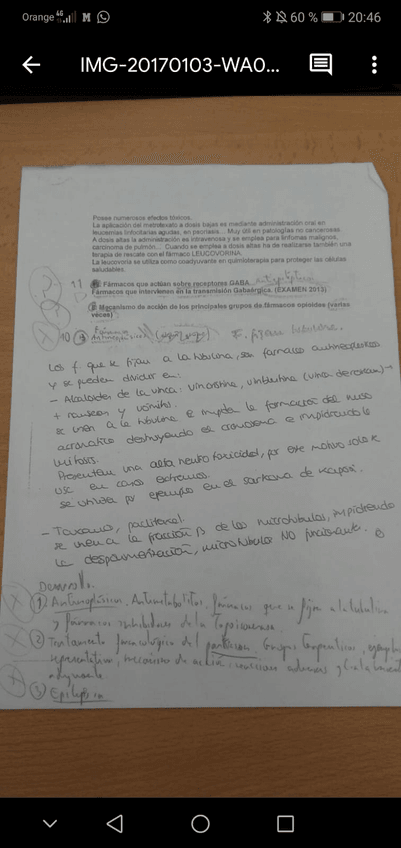 Orange 4G M 60 % 20:46
IMG-20170103-WA0...
Posee numerosos efectos tóxicos.
La aplicación del metotrexato a dosis bajas es mediante administración oral en
leucemias linfocitarias agudas, en psoriasis... Muy útil en patologías no cancerosas.
A dosis altas la administración es intravenosa y se emplea para linfomas malignos,
carcinoma de pulmón... Cuando se emplea a dosis altas ha de realizarse también una
terapia de rescate con el fármaco LEUCOVORINA.
La leucovorina se utiliza como coadyuvante en quimioterapia para proteger las células
saludables.
? 11 Fármacos que actúan sobre receptores GABA
Fármacos que intervienen en la transmisión Gabaérgica. (EXAMEN 2013)
Mecanismo de acción de los principales grupos de fármacos opioides (varias
veces)
X 10 F. fijación tubulina.
Los f. que se fijan a la tubulina, son fármacos
y se pueden dividir en:
- Alcaloides de la vinca: vincristina, vinblastina (vinca
+ nauseas y vómitos
se unen a la tubulina e impide la formación del huso
acromático destruyendo e impidiendo la
mitosis.
Presentan una alta neurotoxicidad, por este motivo solo se
usa en casos extremos.
se utiliza por ejemplo en el sarcoma de kaposi.
- Taxanos, paclitaxel
se unen a la fracción β de los microtúbulos, impidiendo
la despolimerización, microtúbulos NO funcionante.
Desarrollo.
X 1 Antineoplásicos, Antimetabolitos, fármacos que se fijan a la tubulina
y fármacos inhibidores de la Topoisomerasa
X 2 Tratamiento farmacológico del parkinson. Grupos terapeuticos, ejemplos
representativos, mecanismo de acción, reacciones adversas y
adyuvante.
X 3 Epilepsia